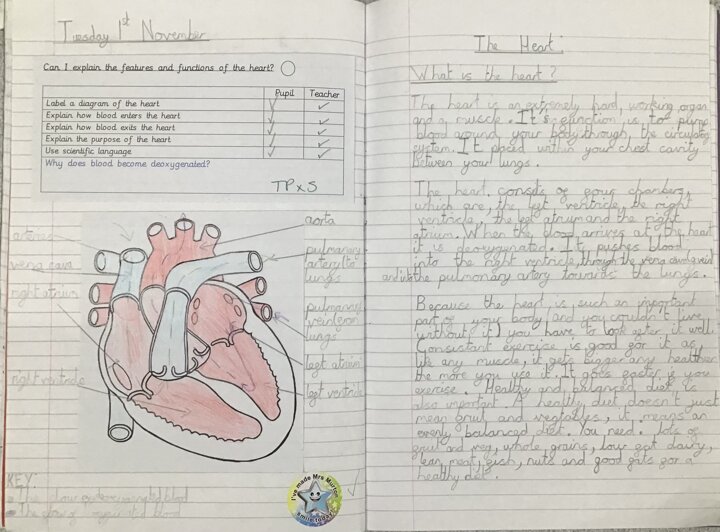 Tuesday 1st November
Can I explain the features and functions of the heart?
Pupil Teacher
Label a diagram of the heart
Explain how blood enters the heart
Explain how blood exits the heart
Explain the purpose of the heart
Use scientific language
Why does blood become deoxygenated?
TPxS
arteries
vena cava
right atrium
right ventricle
aorta
pulmonary
artery (to
lungs
pulmonary
vein (from
lungs
left atrium
left ventricle
KEY:
blood
The flow of oxygenated blood
I've made Mrs
smile today!
The Heart
What is the heart?
The heart is an extremely hard, working organ
and a muscle. It's function is to pump
blood around your body through, the circulatory
system. It placed within your chest cavity
between your lungs.
The heart, consits of four chambers,
which are, the left ventricle, the right
ventricle, the left atrium and the right
atrium. When the blood arrives at the heart
it is deoxygenated. It pushes blood
into the right ventricle, through the vena
and into the pulmonary artery towards the lungs.
Because the heart is such an important
part of your body (and you couldn't live
without it) you have to look after it well.
Consistant exercise is good for it as,
like any muscle, it gets bigger any healthier
the more you use it. It goes easier if you
exercise. Healthy and balanced diet is
also important. A healthy diet doesn't just
mean fruit and vegtables, it means an
evenly balanced diet. You need lots of
fruit and veg, whole grains, low fat dairy,
lean meat, fish, nuts and good fats for a
healthy diet.